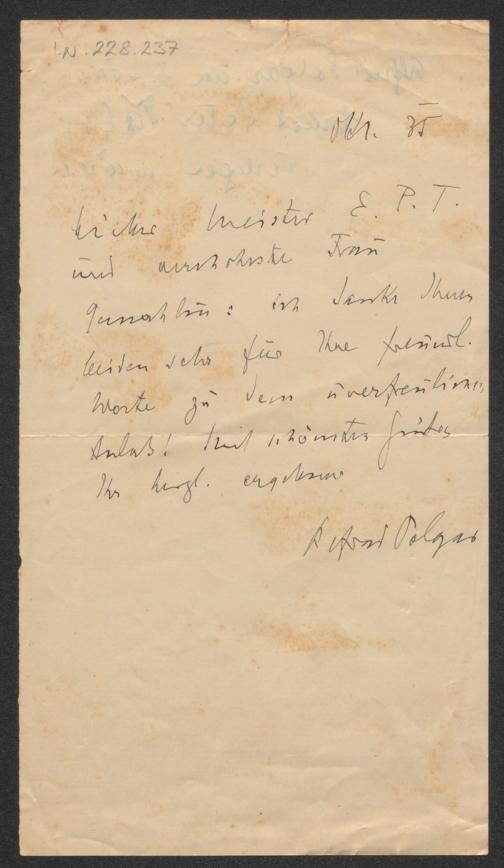 I.N. 228.237
Okt. 35
Lieber Meister E. P. T.
und verehrteste Frau
Gemahlin: ich danke Ihnen
beiden sehr für Ihre freundl.
Worte zu dem unerfreulichen
Anlaß! Mit schönsten Grüßen
Ihr herzl. ergebener
Alfred Polgar